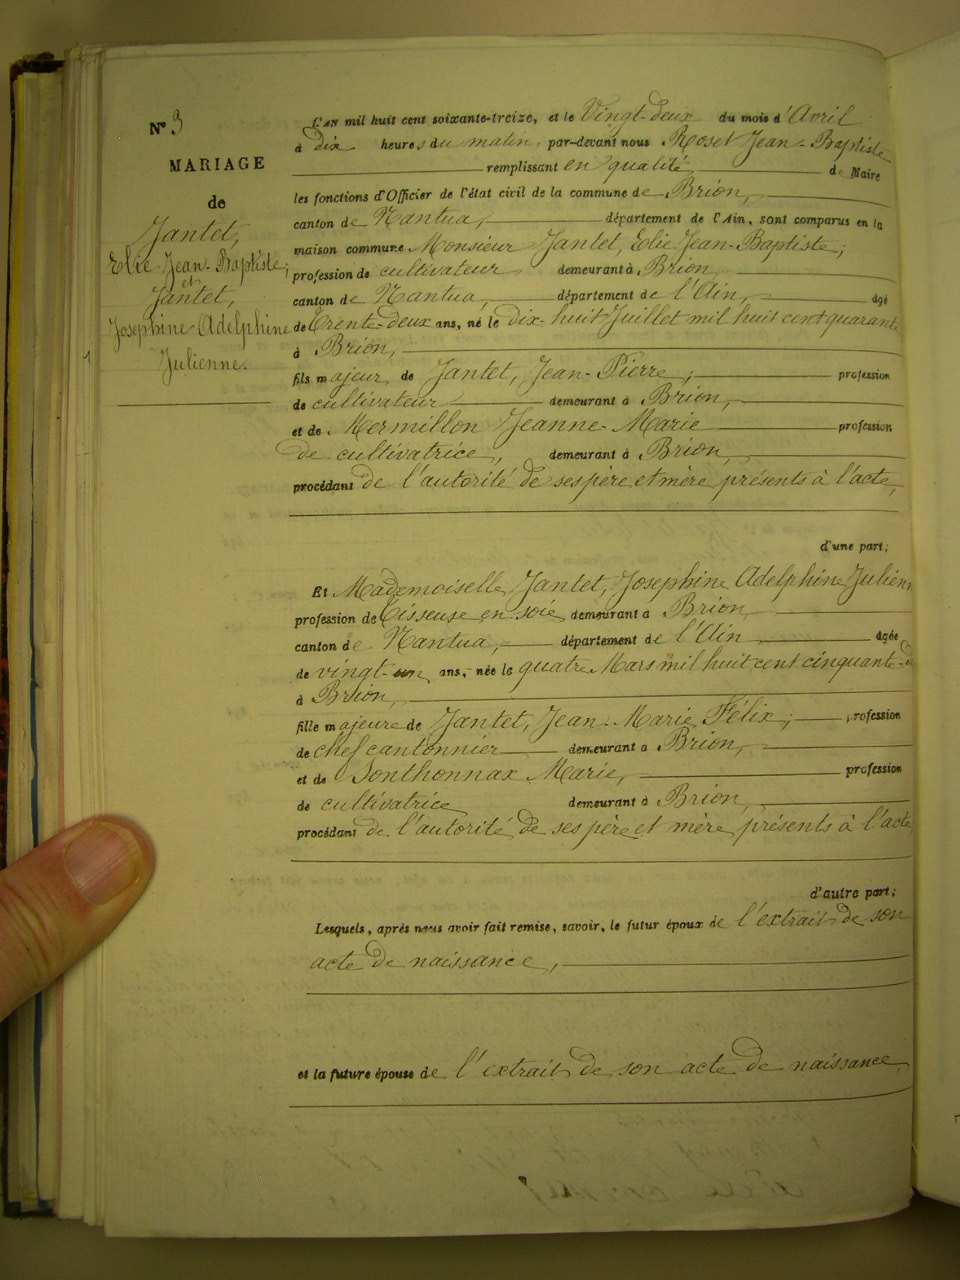 Nº 3
MARIAGE
de
Jantet,
Elie Jean-Baptiste;
et
Jantet,
Josephine Adelphine
Julienne.
L'AN mil huit cent soixante-treize, et le Vingt-deux du mois d'Avril
à dix heures du matin, par-devant nous Roset Jean-Baptiste
remplissant en qualité de Maire
les fonctions d'Officier de l'état civil de la commune de Brion,
canton de Nantua, département de l'Ain, sont comparus en la
maison commune Monsieur Jantet, Elie Jean-Baptiste;
profession de cultivateur demeurant à Brion,
canton de Nantua, département de l'Ain, âgé
de Trente-deux ans, né le dix-huit Juillet mil huit cent quarante
à Brion,
fils majeur de Jantet, Jean-Pierre; profession
de cultivateur demeurant à Brion,
et de Mermillon Jeanne-Marie profession
de cultivatrice, demeurant à Brion,
procédant de l'autorité de ses père et mère présents à l'acte,
d'une part;
Et Mademoiselle Jantet, Josephine Adelphine Julien
profession de Tisseuse en soie demeurant à Brion,
canton de Nantua, département de l'Ain âgée
de vingt-un ans, née le quatre Mars mil huit cent cinquante-
à Brion,
fille majeure de Jantet, Jean-Marie Félix; profession
de chef cantonnier demeurant à Brion,
et de Sonthonnax Marie, profession
de cultivatrice demeurant à Brion,
procédant de l'autorité de ses père et mère présents à l'acte
d'autre part;
Lesquels, après nous avoir fait remise, savoir, le futur époux de l'extrait de son
acte de naissance,
et la future épouse de l'extrait de son acte de naissance,